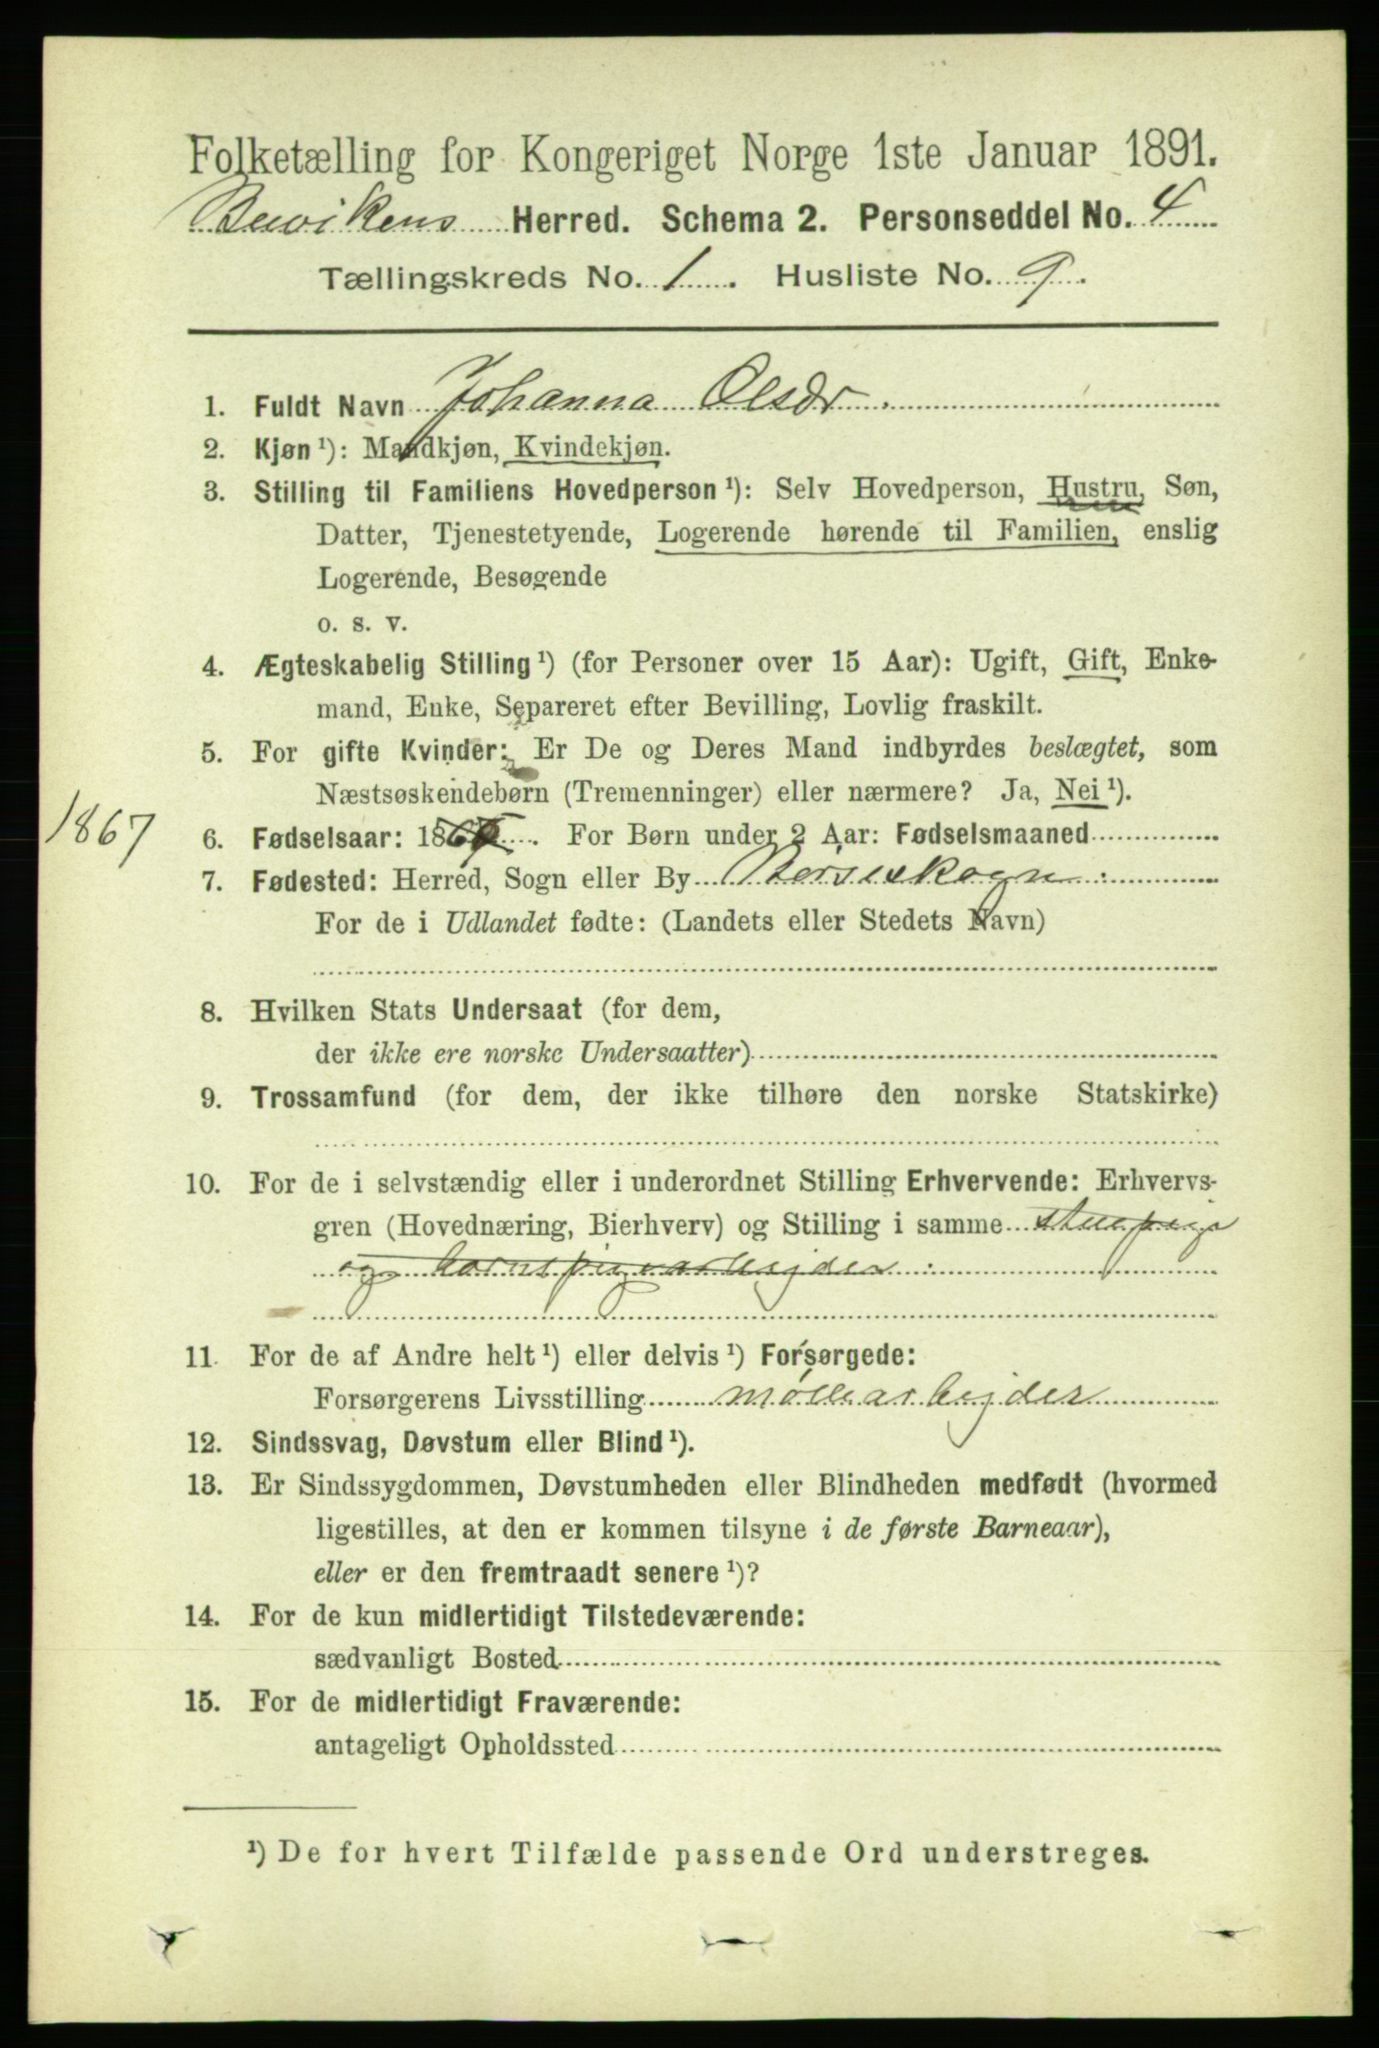 Folketælling for Kongeriget Norge 1ste Januar 1891.
Buvikens Herred. Schema 2. Personseddel No. 4
Tællingskreds No. 1. Husliste No. 9.
1. Fuldt Navn Johanna Olsdr.
2. Kjøn¹): Mandkjøn, Kvindekjøn.
3. Stilling til Familiens Hovedperson¹): Selv Hovedperson, Hustru, Søn,
Datter, Tjenestetyende, Logerende hørende til Familien, enslig
Logerende, Besøgende
o. s. v.
4. Ægteskabelig Stilling¹) (for Personer over 15 Aar): Ugift, Gift, Enke-
mand, Enke, Separeret efter Bevilling, Lovlig fraskilt.
5. For gifte Kvinder: Er De og Deres Mand indbyrdes beslægtet, som
Næstsøskendebørn (Tremenninger) eller nærmere? Ja, Nei¹).
1867
6. Fødselsaar: 186. For Børn under 2 Aar: Fødselsmaaned
7. Fødested: Herred, Sogn eller By Børseskogn.
For de i Udlandet fødte: (Landets eller Stedets Navn)
8. Hvilken Stats Undersaat (for dem,
der ikke ere norske Undersaatter)
9. Trossamfund (for dem, der ikke tilhøre den norske Statskirke)
10. For de i selvstændig eller i underordnet Stilling Erhvervende: Erhvervs-
gren (Hovednæring, Bierhverv) og Stilling i samme
og
11. For de af Andre helt¹) eller delvis¹) Forsørgede:
Forsørgerens Livsstilling møllearbejder
12. Sindssvag, Døvstum eller Blind¹).
13. Er Sindssygdommen, Døvstumheden eller Blindheden medfødt (hvormed
ligestilles, at den er kommen tilsyne i de første Barneaar),
eller er den fremtraadt senere¹)?
14. For de kun midlertidigt Tilstedeværende:
sædvanligt Bosted
15. For de midlertidigt Fraværende:
antageligt Opholdssted
¹) De for hvert Tilfælde passende Ord understreges.